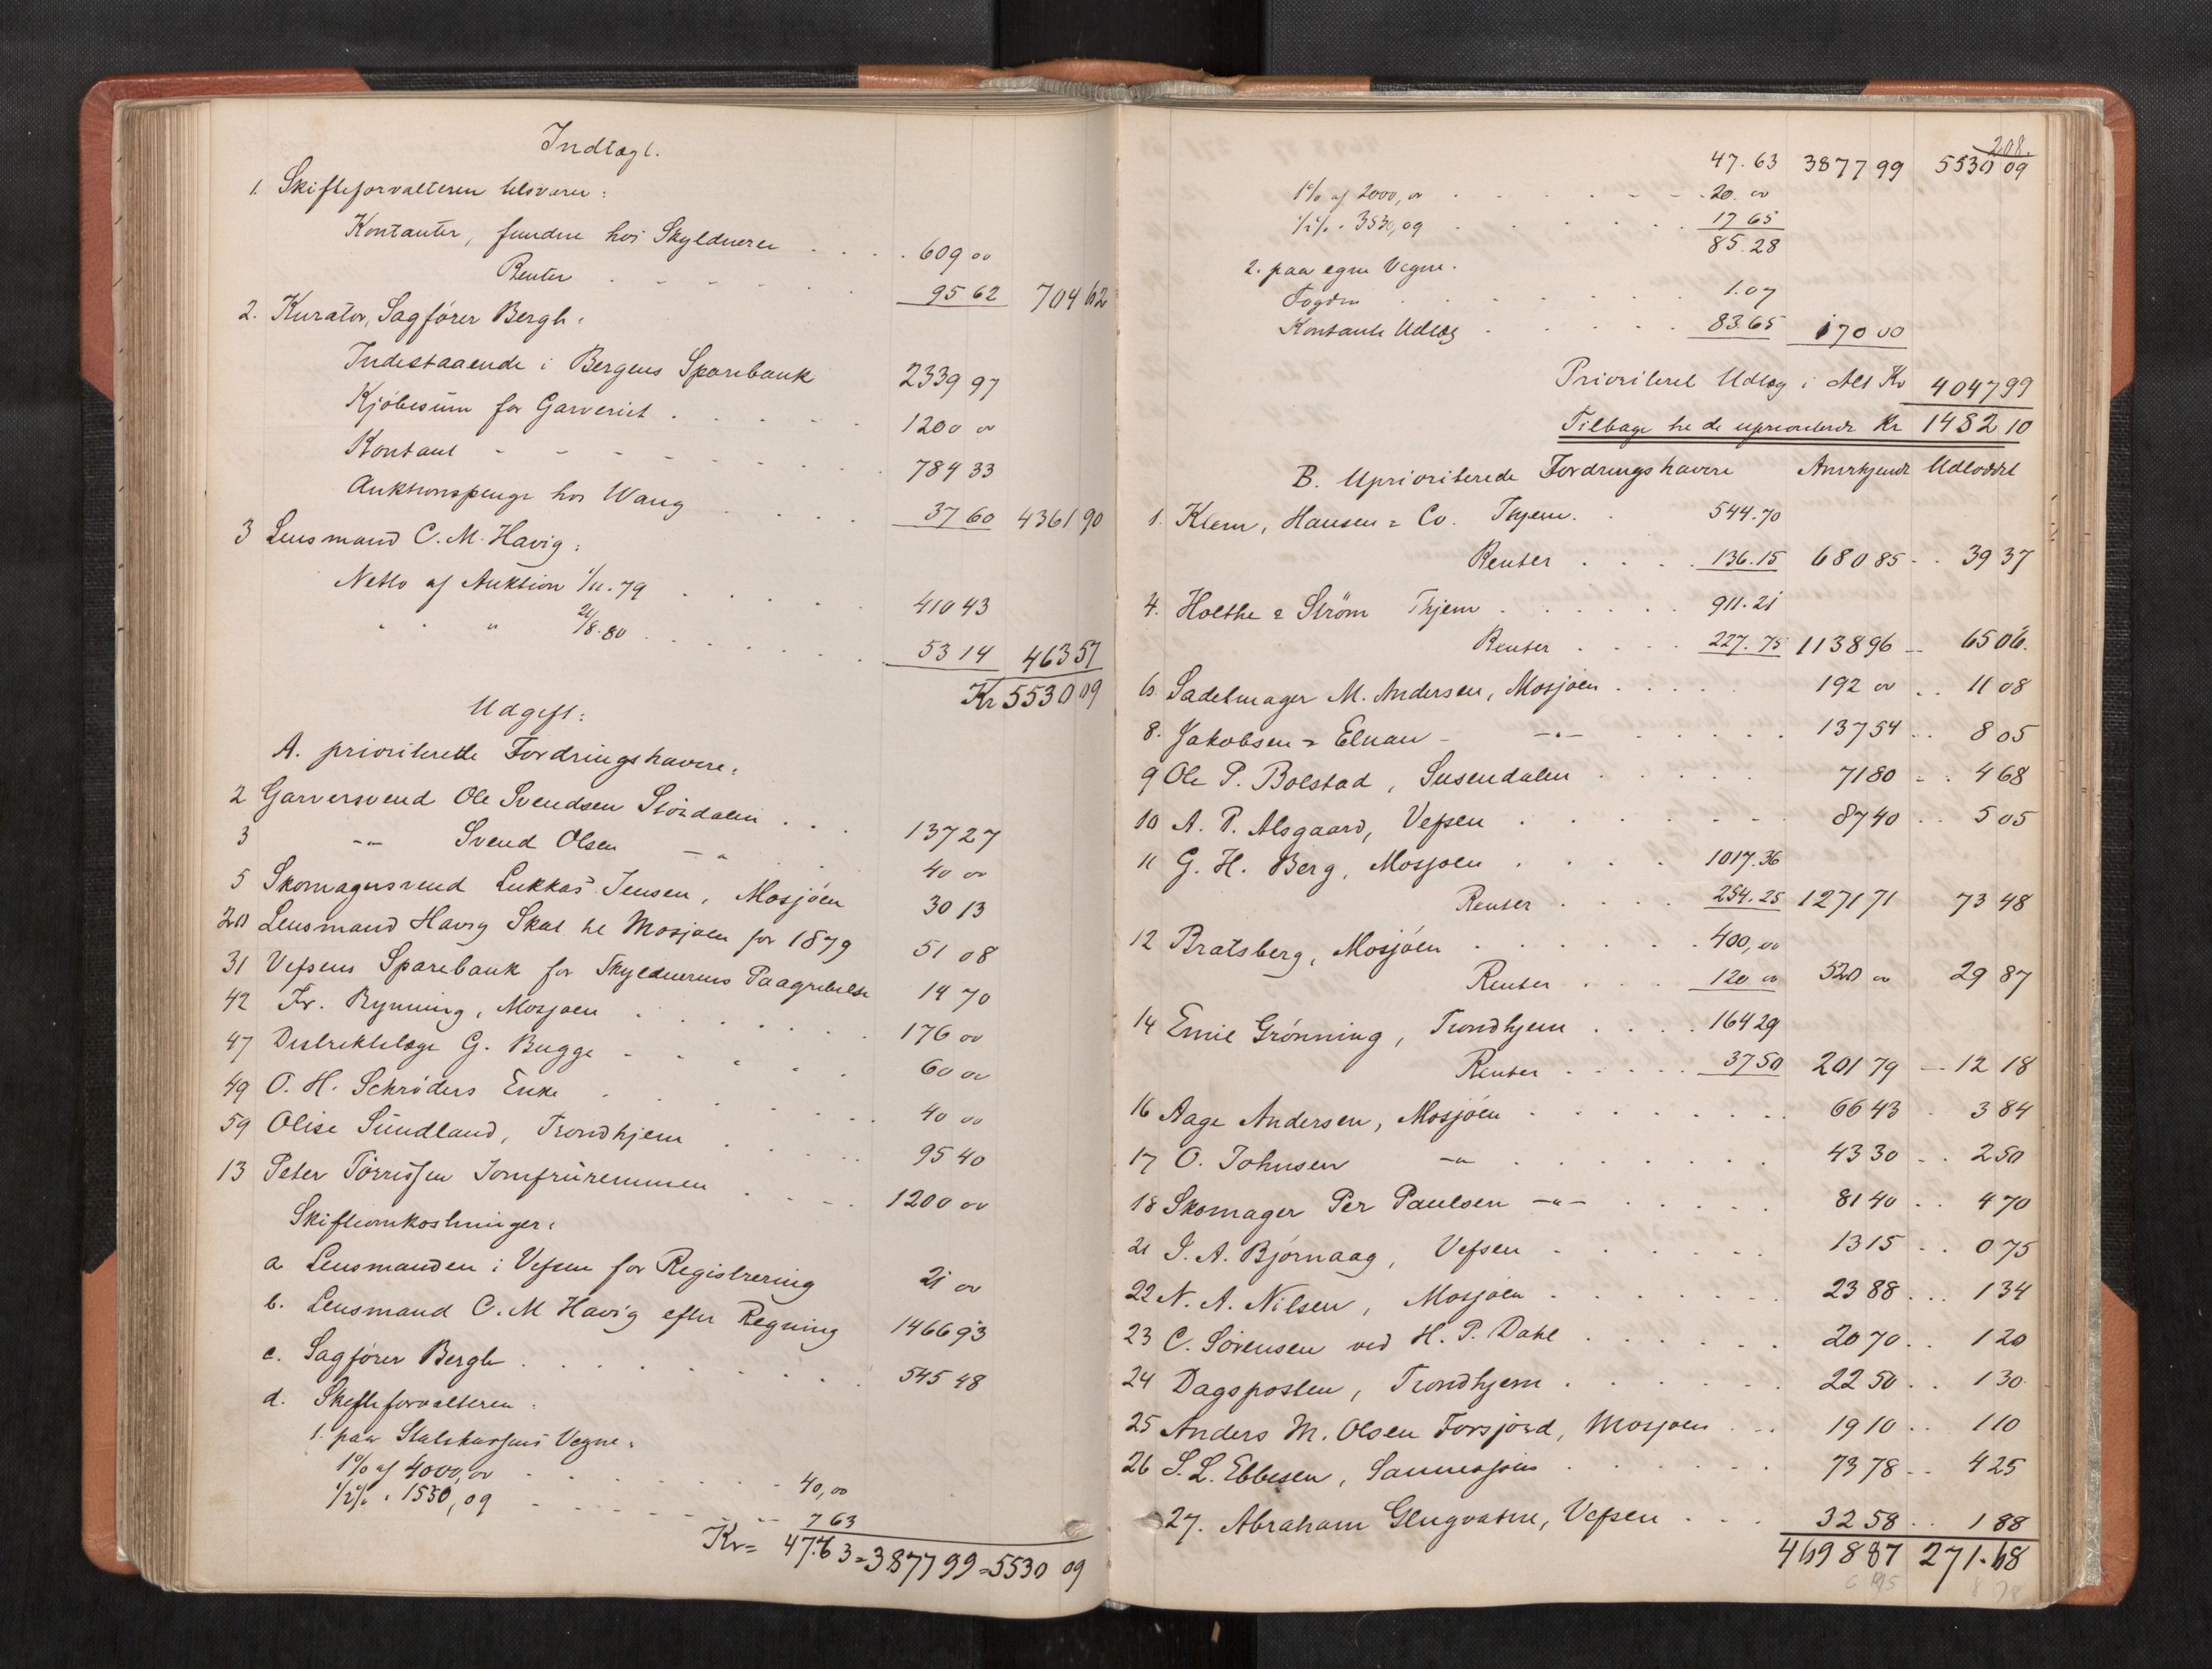 Indtægt.
1. Skifteforvalteren tilsvarer:
Kontanter, fundne hos Skyldneren . . . . 609 00
Renter . . . . . . 95 62 704 62
2. Kurator, Sagfører Bergh:
Indestaaende i Bergens Sparebank 2339 97
Kjøbesum for Garveriet . . . . . 1200 00
Kontant - - - - - - - 784 33
Auktionspenge hos Wang . . . . 37 60 4361 90
3 Lensmand C. M. Havig:
Netto af Auktion 1/11.79 . . . . . 410 43
" " " 21/8.80 . . . . . . 53 14 463 57
Kr 5530 09
Udgift:
A. prioriterede Fordringshavere:
2 Garversvend Ole Svendsen Størdalen . . . 137 27
3 -"- Svend Olsen -"- 40 00
5 Skomagersvend Lukkas Jensen, Mosjøen 30 13
20 Lensmand Havig Skat til Mosjøen for 1879 51 08
31 Vefsens Sparebank for Skyldnerens Paagribelse 14 70
42 Fr. Rynning, Mosjøen . . . . . . 176 00
47 Distriktslæge G. Bugge - . . . . 60 00
49 O. H. Schrøders Enke . . . . . . 40 00
59 Olise Sundland, Trondhjem . . . . 95 40
13 Peter Tørrissen Jomfruremmen . . . . 1200 00
Skifteomkostninger:
a Lensmanden i Vefsen for Registrering 21 00
b. Lensmand C. M Havig efter Regning 1466 93
c. Sagfører Bergh . . . . . . . . 545 48
d. Skifteforvalteren:
1. paa Statskassens Vegne:
1% af 4000,00 . . . . . . - 40,00
1/2% " 1530,09 - . . . . - - 7 63
Kr = 47.63 = 3877 99 = 5530 09
208.
47.63 3877 99 5530 09
1% af 2000,00 . . . . - - . 20.00
1/2% " 3530,09 . . . . . 17 65
85.28
2. paa egne Vegne.
Fogden . . . . . . . . 1.07
Kontante Udlæg . . . . . 83.65 170 00
Prioriteret Udlæg i Alt Kr 4047 99
Tilbage til de uprioriterede Kr 1482 10
B. Uprioriterede Fordringshavere Anerkjendt Udloddet
1. Klem, Hansen & Co. Thjem. . 544.70
Renter . . . . 136.15 680 85 - . 39 37
4. Holthe & Strøm Thjem . . . . . . 911.21
Renter . . . . 227.75 1138 96 - 65 06.
6 Sadelmager M. Andersen, Mosjøen . . . . . 192 00 . . 11 08
8. Jakobsen & Elnan - -"- . . . . . . 137 54 . . 8 05
9 Ole P. Bolstad, Susendalen . . . . . 71 80 - . 4 68
10 A. P. Alsgaard, Vefsen . . . . . . - - 87 40 . . 5 05
11 G. H. Berg, Mosjøen . . . . 1017.36
Renter . . . . 254.25 1271 71 73 48
12 Bratsberg, Mosjøen . . . . . . 400,00
Renter . . . 120 00 520 00 29 87
14 Emil Grønning, Trondhjem . . . . 164 29
Renter . . . . . 37 50 201 79 - . 12 18
16 Aage Andersen, Mosjøen . . . . . . . . 66 43 . 3 84
17 O. Johnsen -"- . . . . . . . 43 30 - . 2 50
18 Skomager Per Paulsen -"- . . . . . 81 40 . . 4 70
21 I. A. Bjørnaag, Vefsen . . . . . . 13 15 . . 0 75
22 N. A. Nilsen, Mosjøen . . . . . . . 23 88 . . . 1 34
23 C. Sørensen ved H. P. Dahl . . . . . . 20 70 . . 1 20
24 Dagsposten, Trondhjem . . . . . . 22 50 . . 1 30
25 Anders M. Olsen Forsjord, Mosjøen . . . 19 10 . . 1 10
26 S. L. Ebbesen, Sannesjøen . . . . . . 73 78 . . 4 25
27. Abraham Glugvatne, Vefsen . . . 32 58 . . 1 88
4698 87 271.68